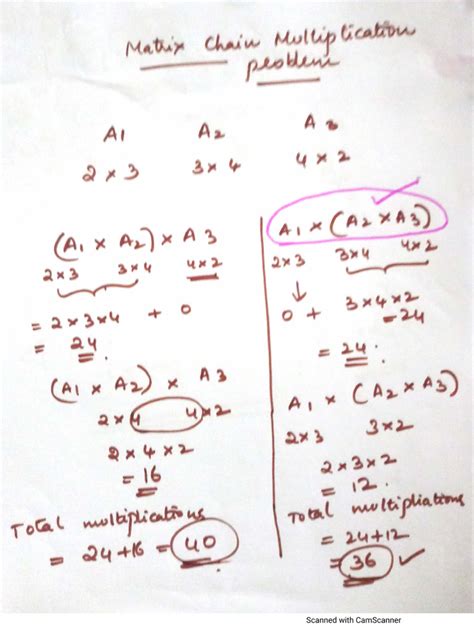 Matrix Chain Multiplication
problem
A1 A2 A3
2 x 3 3 x 4 4 x 2
(A1 x A2) x A3
2x3 3x4 4x2
= 2x3x4 + 0
= 24.
(A1 x A2) x A3
2x4 4x2
2 x 4 x 2
= 16
Total multiplications
= 24+16 = 40
A1 x (A2 x A3)
2x3 3x4 4x2
↓
0 + 3x4x2
=24
= 24.
A1 x (A2 x A3)
2x3 3x2
2x3x2
= 12.
Total multipliations
= 24+12
= 36 ✓
Scanned with CamScanner